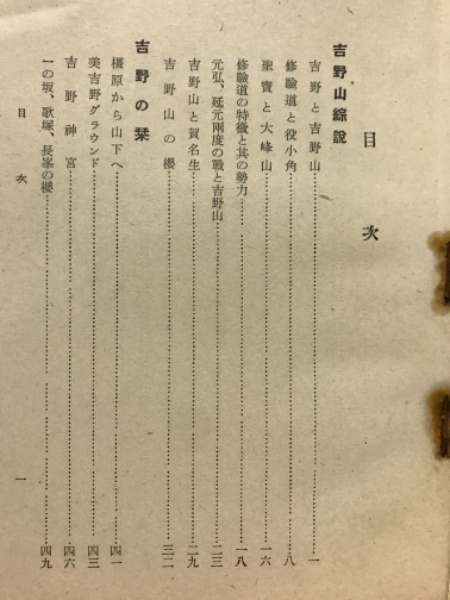 目次
吉野山綜說
吉野と吉野山……一
修驗道と役小角……八
聖寶と大峰山……一六
修驗道の特徵と其の勢力……一八
元弘、延元兩度の戰と吉野山……二三
吉野山と賀名生……二九
吉野山の櫻……三二
吉野の栞
橿原から山下へ……四一
美吉野グラウンド……四三
吉野神宮……四六
一の坂、歌塚、長峯の櫻……四九
目次
一